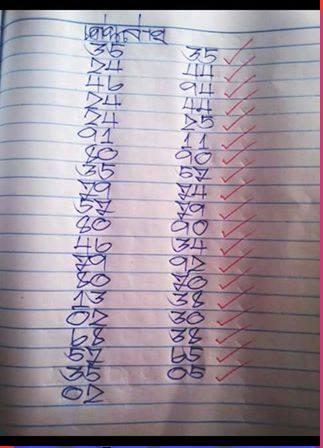 35 35
24 44
46 94
24 44
24 25
91 11
80 90
35 57
79 74
57 79
80 90
46 34
79 92
80 70
13 38
02 30
68 38
57 65
35 05
02